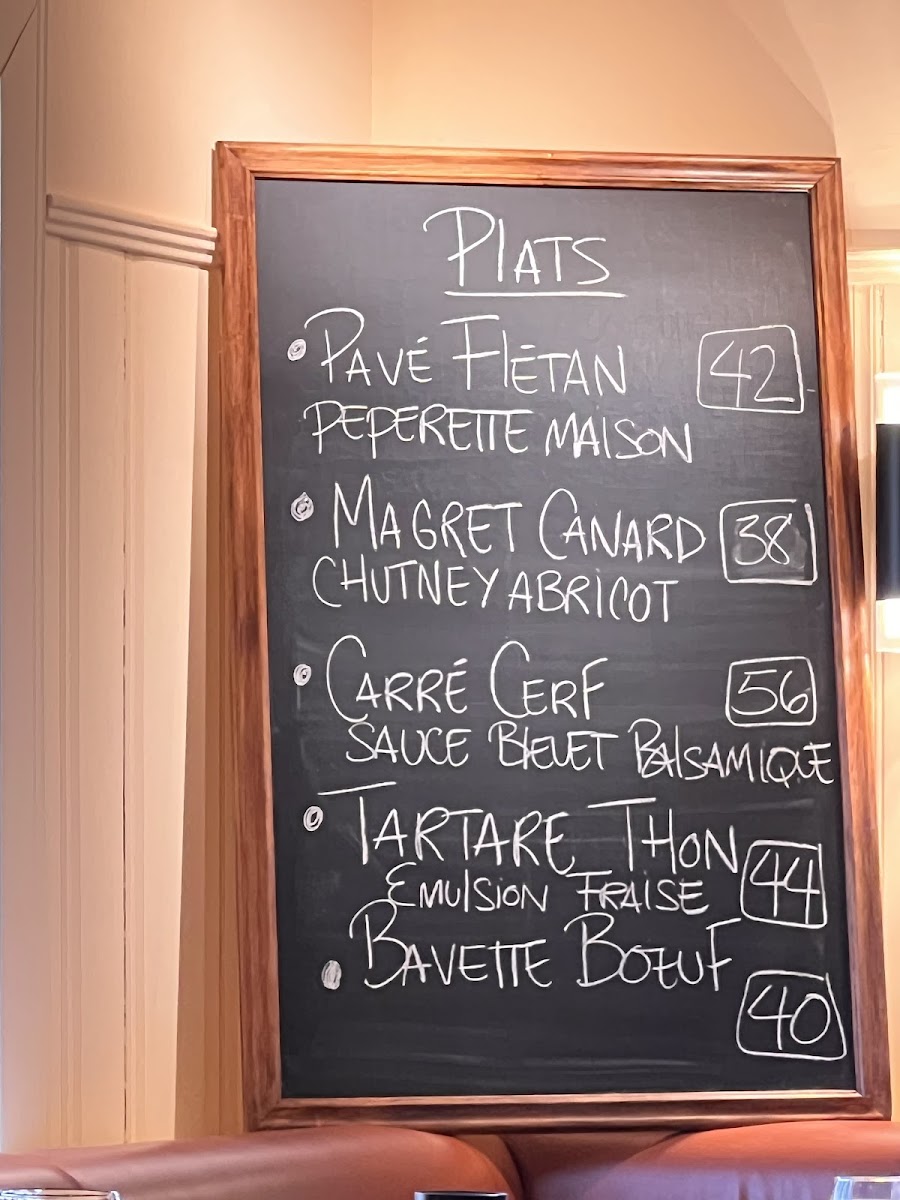 Plats
Pavé Flétan 42
Peperette maison
Magret Canard 38
Chutney abricot
Carré Cerf 56
Sauce Bleuet Balsamique
Tartare Thon
Emulsion Fraise 44
Bavette Boeuf
40